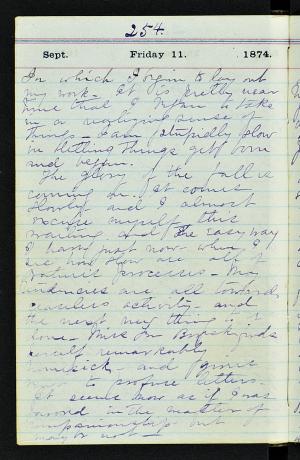 254.
Sept. Friday 11. 1874.
In which I begin to lay out
my work. It is pretty near
time that I began to take
in a
things - I am stupidly slow
in letting things get
and
The glory of the fall is
coming on. It comes
slowly and I almost
excuse myself this
waiting and the easy way
I have just now when I
see how slow are all of
nature's processes - My
tendencies are all towards
ceaseless activity and
the next thing is
home - Mrs
herself remarkably
homesick - and
to profuse letters.
It seems now as if I was
favored in the matter of
companionship but
maybe not -